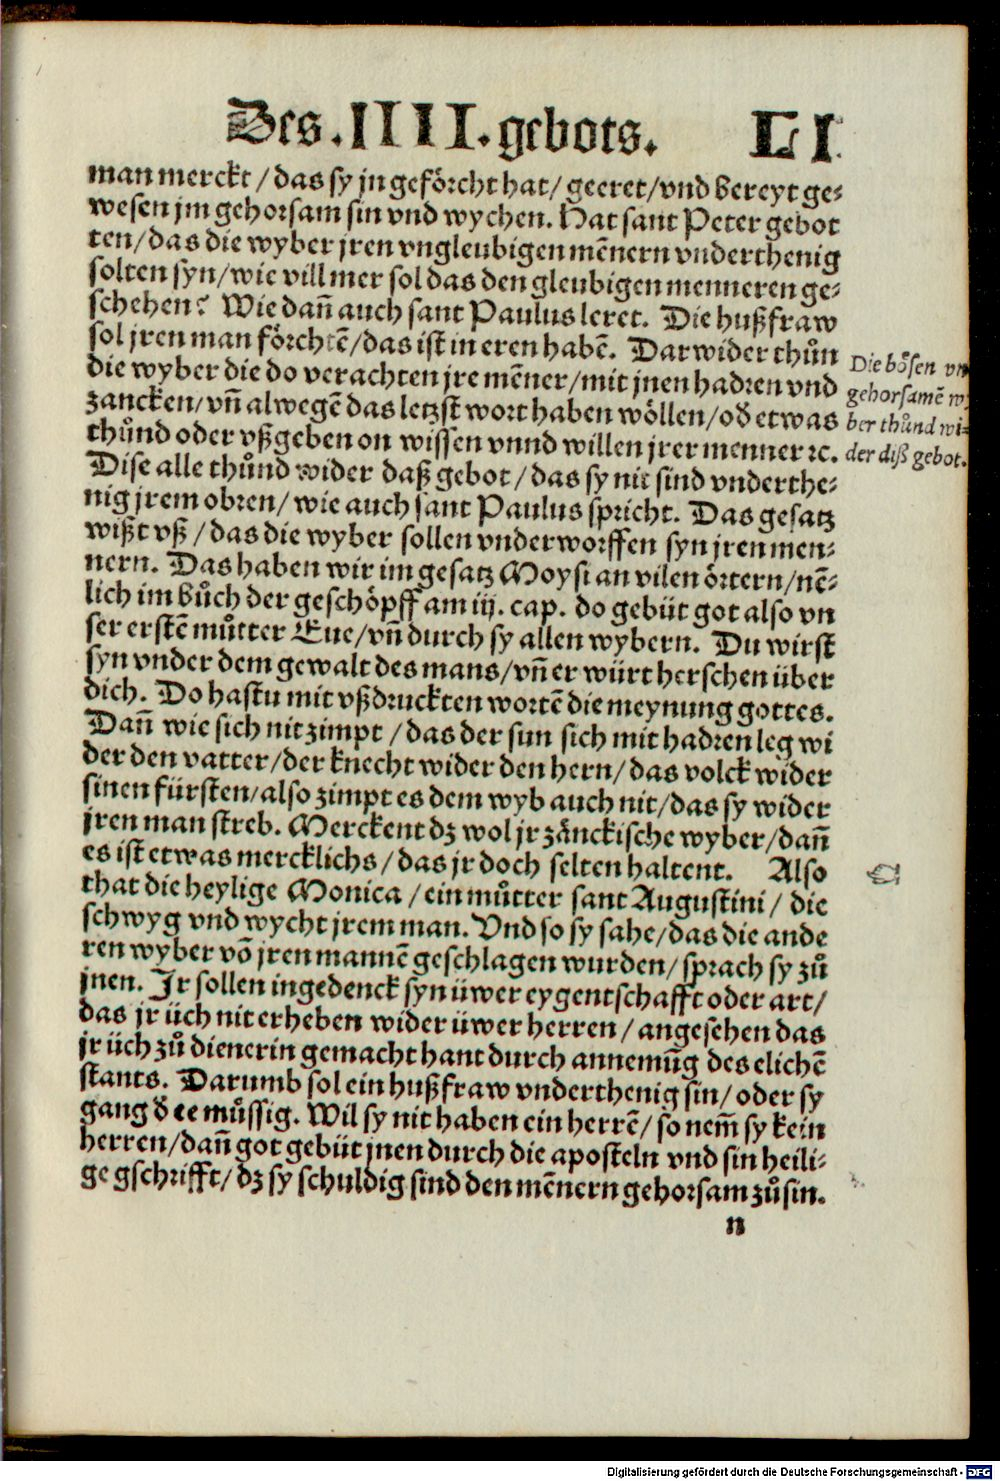 Des .IIII. gebots. LI
man merckt / das sy jn geförcht hat / geeret / vnd bereyt ge⸗
wesen jm gehorsam sin vnd wychen. Hat sant Peter gebot
ten / das die wyber jren vngleubigen mēnern vnderthenig
solten syn / wie vill mer sol das den gleubigen menneren ge⸗
schehen? Wie dan̄ auch sant Paulus leret. Die hußfraw
sol jren man förchtē / das ist in eren habē. Darwider thůn
die wyber die do verachten jre mēner / mit jnen hadren vnd
zancken / vn̄ alwegē das letzst wort haben wöllen / od etwas
thůnd oder vßgeben on wissen vnnd willen jrer menner ꝛc.
Dise alle thůnd wider daß gebot / das sy nit sind vnderthe⸗
nig jrem obren / wie auch sant Paulus spricht. Das gesatz
wißt vß / das die wyber sollen vnderworffen syn jren men⸗
nern. Das haben wir im gesatz Moysi an vilen örtern / nē⸗
lich im bůch der geschöpff am iij. cap. do gebüt got also vn
ser erstē můtter Eue / vn̄ durch sy allen wybern. Du wirst
syn vnder dem gewalt des mans / vn̄ er würt herschen über
dich. Do hastu mit vßdruckten wortē die meynung gottes.
Dan̄ wie sich nit zimpt / das der sun sich mit hadren leg wi
der den vatter / der knecht wider den hern / das volck wider
sinen fürsten / also zimpt es dem wyb auch nit / das sy wider
jren man streb. Merckent dz wol jr zänckische wyber / dan̄
es ist etwas mercklichs / das jr doch selten haltent. Also
that die heylige Monica / ein můtter sant Augustini / die
schwyg vnd wycht jrem man. Vnd so sy sahe / das die ande
ren wyber vō jren mannē geschlagen wurden / sprach sy zů
jnen. Ir sollen ingedenck syn üwer eygentschafft oder art /
das jr üch nit erheben wider üwer herren / angesehen das
jr üch zů dienerin gemacht hant durch annemūg des elichē
stants. Darumb sol ein hußfraw vnderthenig sin / oder sy
gang d ee müssig. Wil sy nit haben ein herrē / so nem̄ sy kein
herren / dan̄ got gebüt jnen durch die aposteln vnd sin heili⸗
ge gschrifft / dz sy schuldig sind den mēnern gehorsam zůsin.
n
Die bösen vn
gehorsamē wy
ber thůnd wi⸗
der diß gebot.
Digitalisierung gefördert durch die Deutsche Forschungsgemeinschaft - DFG